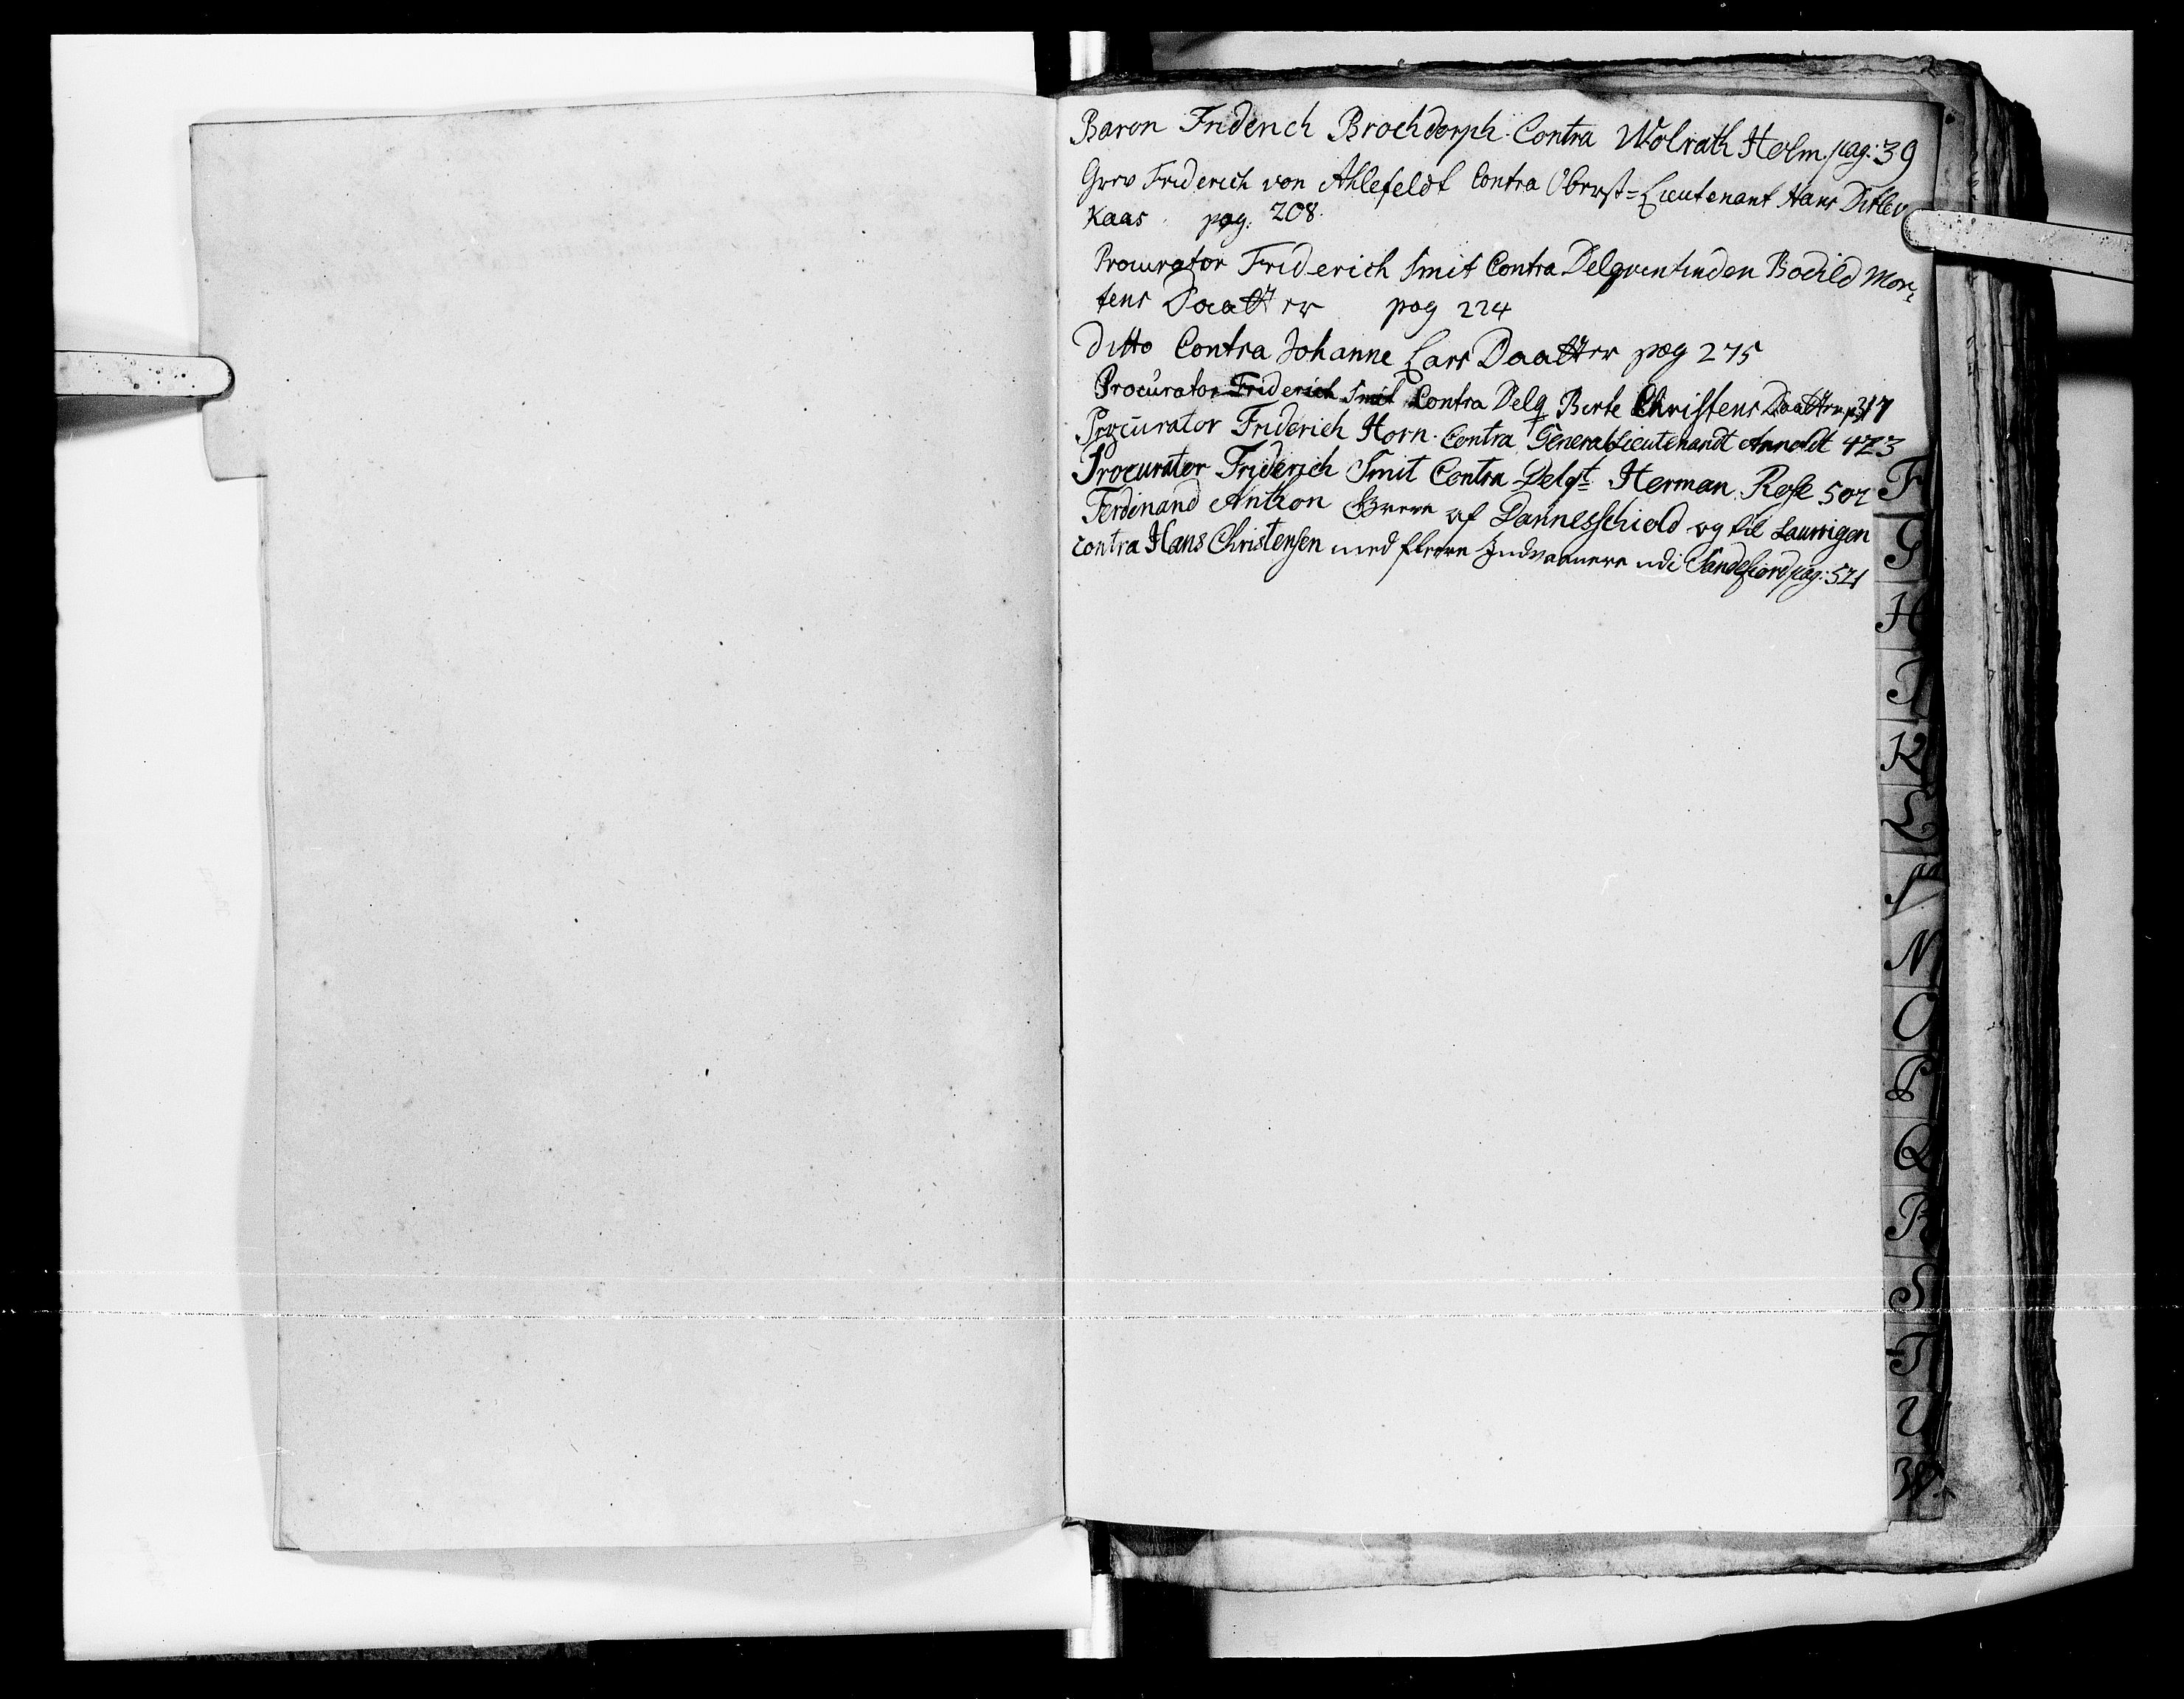 Baron Friderich Brochdorph Contra Wolrath Holm. pag: 39
Grev Friderich von Ahlefeldt Contra Oberst=Lieutenant Hans Ditlev
Kaas pag. 208.
Procurator Friderich Smit Contra Delqventinden Bodild Mor-
tens Daatter pag 224
Ditto Contra Johanne Lars Daatter pag 275
Procurator Friderich Smit Contra Delq Birte Christens Daatter p 317
Procurator Friderich Horn. Contra General Lieutenandt Arnoldt 423
Procurator Friderich Smit Contra Delqt Herman Rose 502
Ferdinand Anthon Greve af Dannesschiold og til Laurvigen
contra Hans Christensen med fleere Indvaanere udi Sandefiord pag: 521
F
G
H
I
K
L
M
N
O
P
Q
R
S
T
V
W.